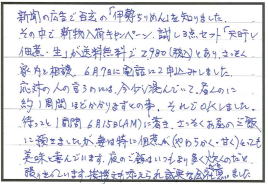 新聞の広告で百玄の「伊勢ちりめん」を知りました。
その中で新物入荷キャンペーン、試し3点セット「天日干
佃煮・生」が送料無料で2980(税込)とあり、さっそく
家内と相談、6月7日に電話にて申込みしました。
応対の人の言うのには、今台り混んでいて、届くのに
約1週間ほどかかりますとの事、それでOKしました。
待つこと1週間 6月15日(AM)に着き、さっそくお昼のご飯
に頂きましたが、妻は特に佃煮が(やわらかく・甘く)とても
美味と喜んでいます。夜のご飯はいつもより多く炊くのだと
張り切っています。接接文が添えられ誠実な